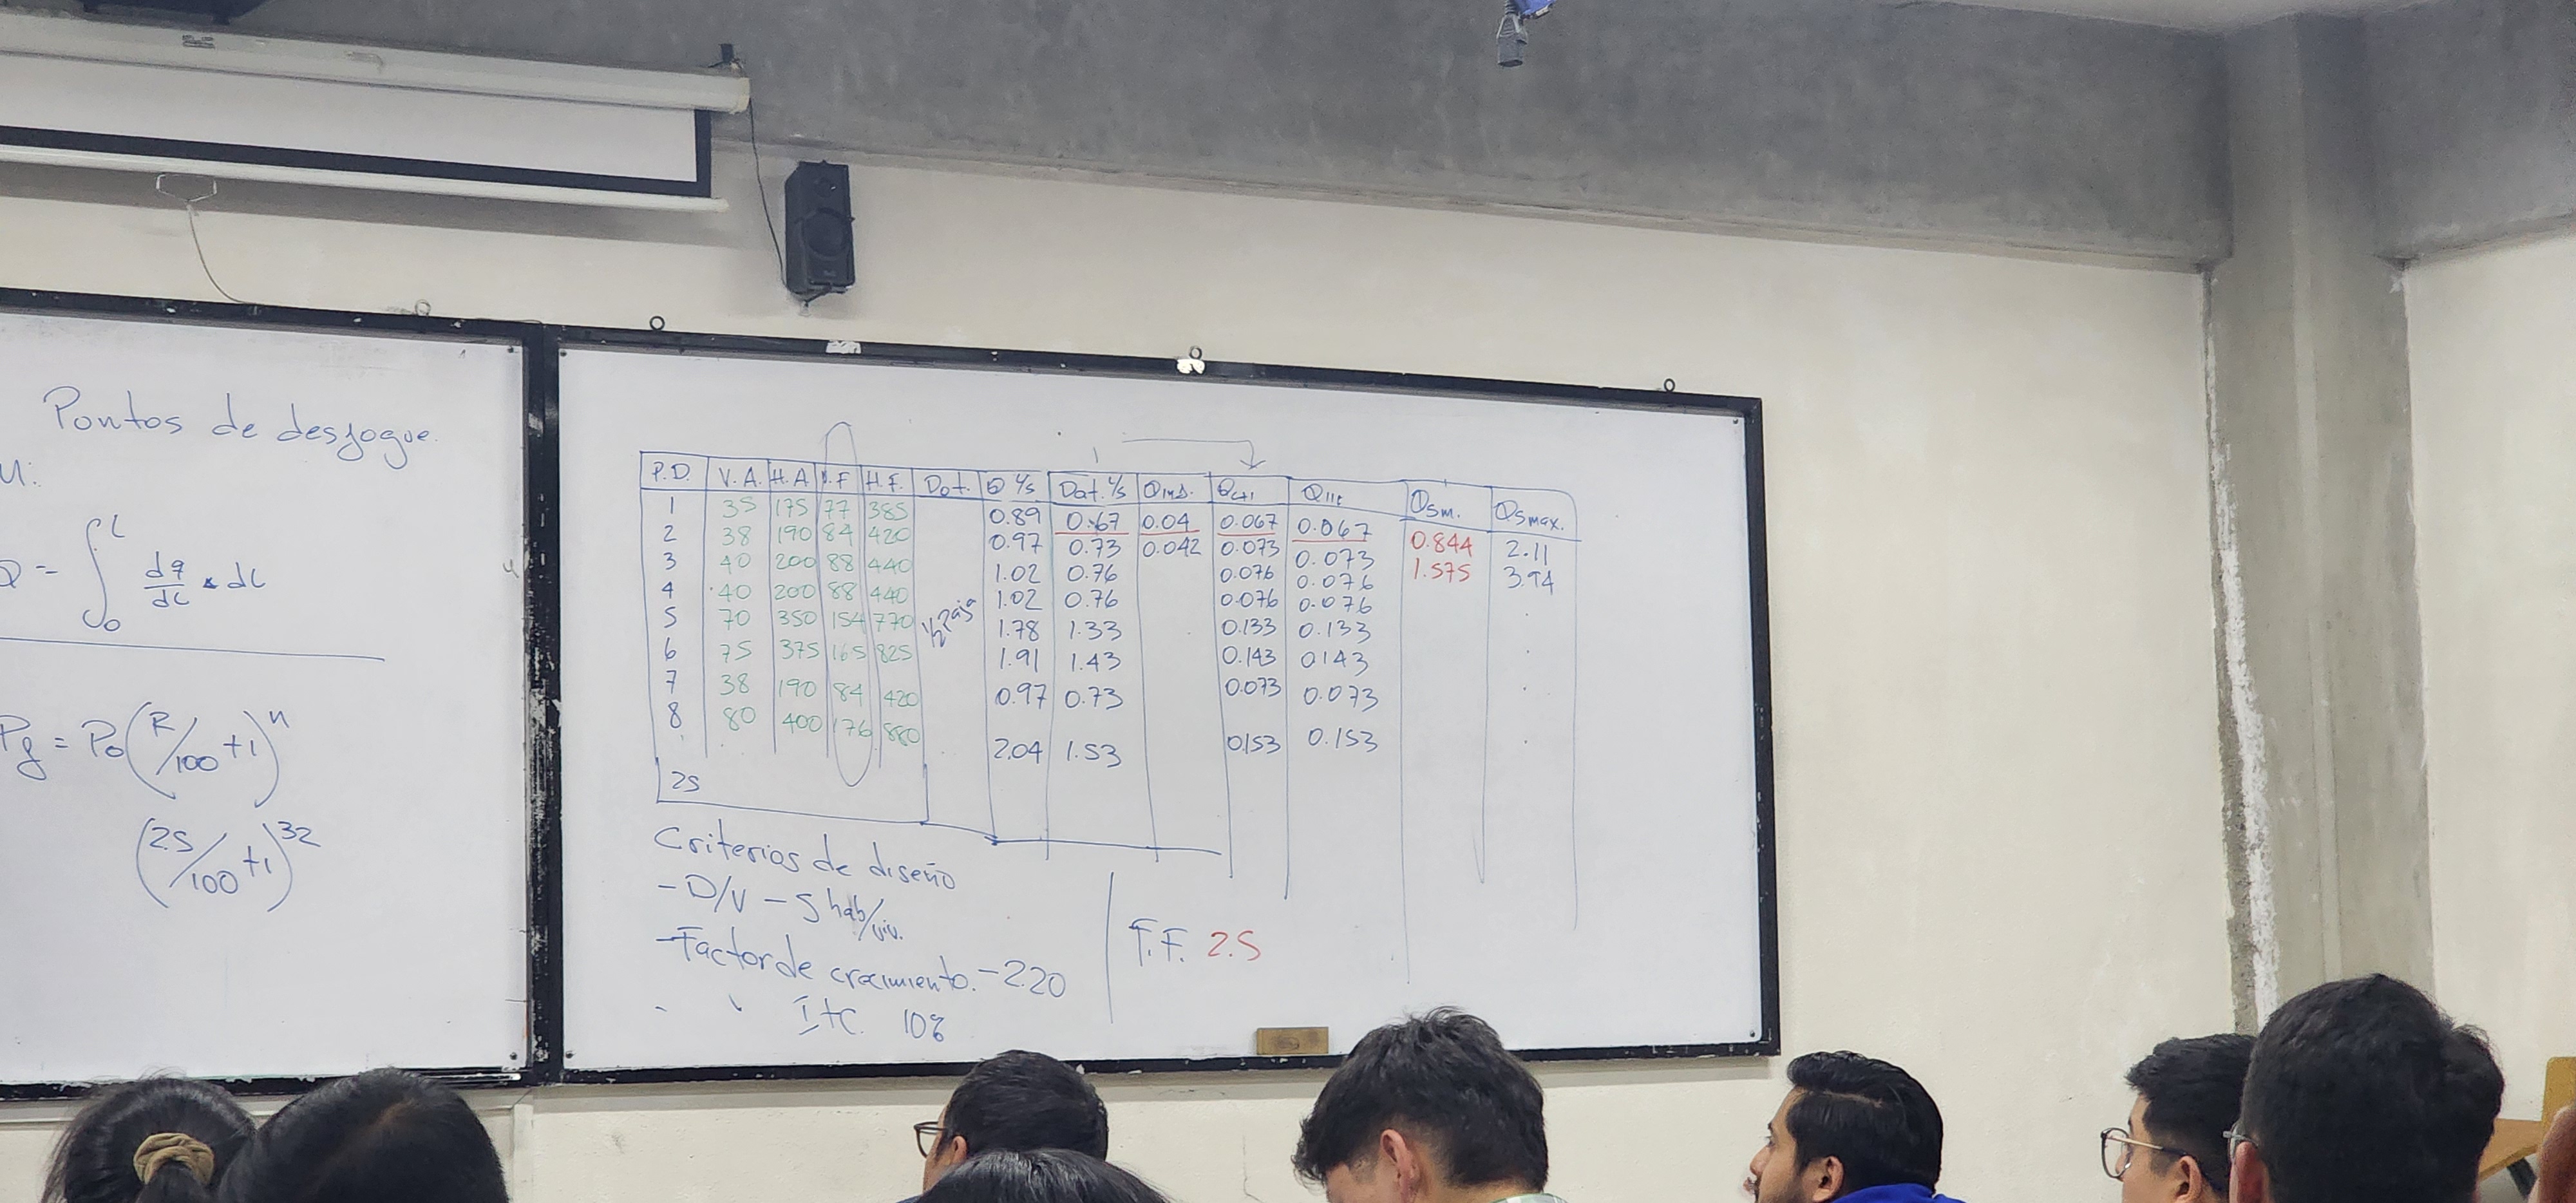 Puntos de desfogue.
M:
Q = ∫₀ᴸ dq/dL * dL
Pf = Po (R/100 + 1)ⁿ
(2.5/100 + 1)³²
P.D. V.A. H.A V.F H.F. Dot. Q l/s Dot. l/s Qind. QCI Qilic Qsm. Qsmax.
1 35 175 77 385 0.89 0.67 0.04 0.067 0.067 0.844 2.11
2 38 190 84 420 0.97 0.73 0.042 0.073 0.073 1.575 3.94
3 40 200 88 440 1.02 0.76 0.076 0.076
4 40 200 88 440 1.02 0.76 0.076 0.076
5 70 350 154 770 1/2 Paja 1.78 1.33 0.133 0.133
6 75 375 165 825 1.91 1.43 0.143 0143
7 38 190 84 420 0.97 0.73 0.073 0.073
8 80 400 176 880 2.04 1.53 0.153 0.153
25
Criterios de diseño
- D/V - 5 hab/viv.
- Factor de crecimiento. - 2.20
I+C. 10%
F.F. 2.5